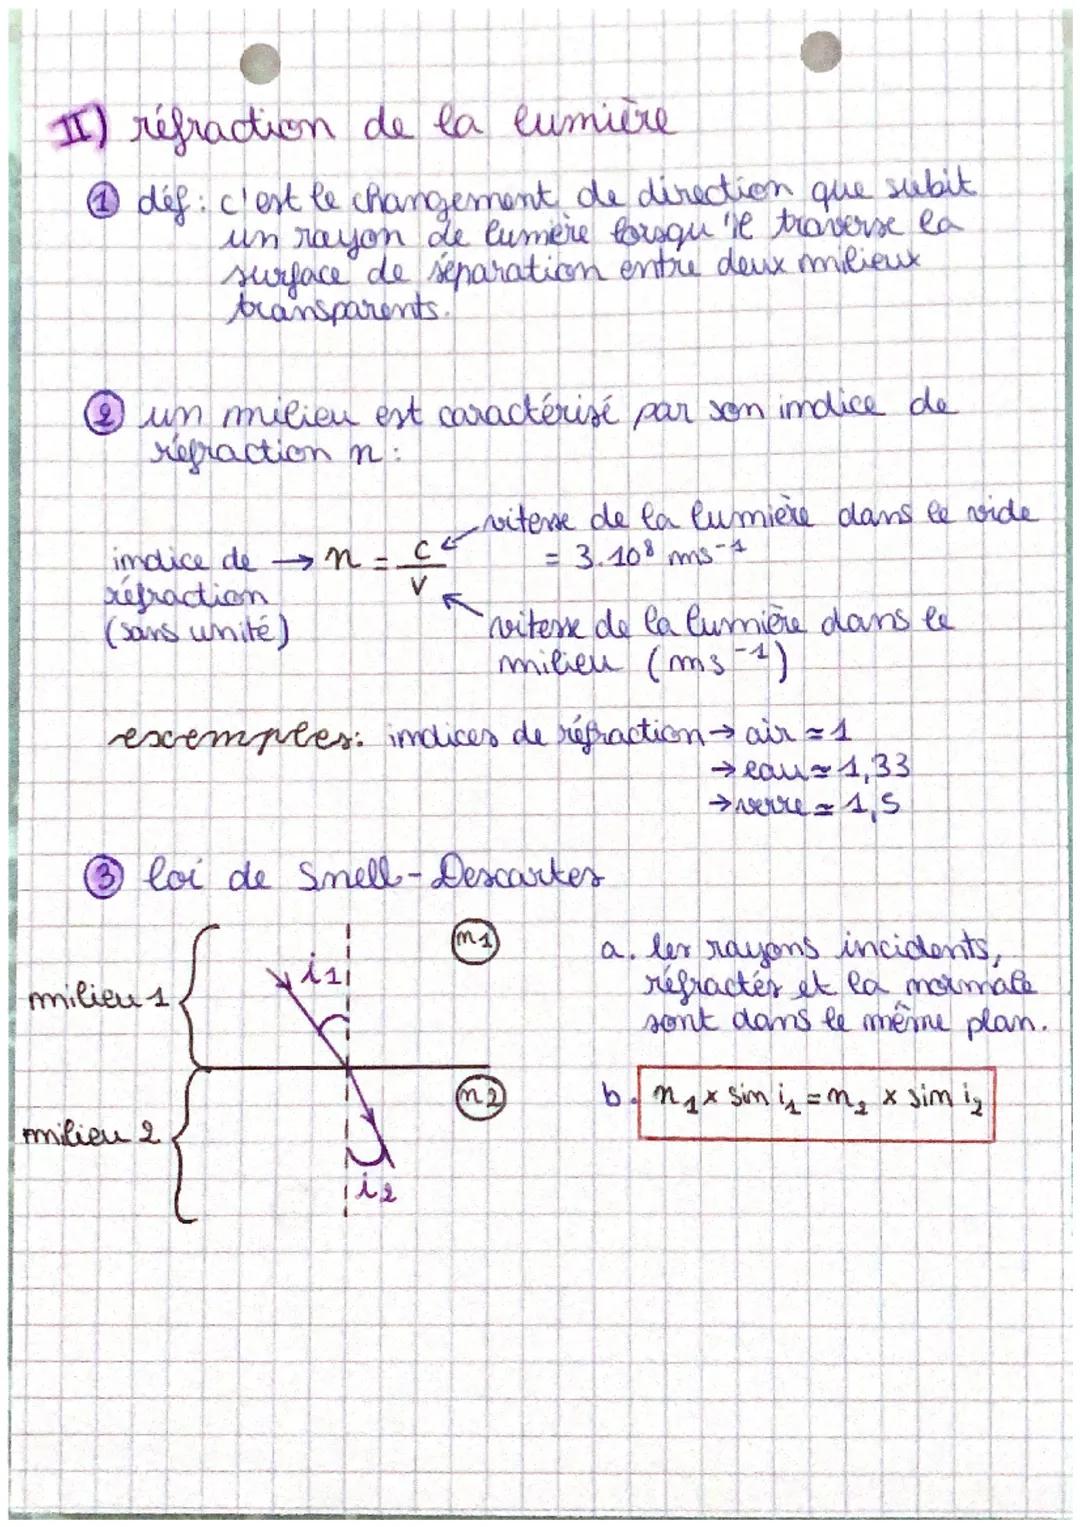 II) réfraction de la lumière
① déf: c'est le changement de direction que subit
un rayon de lumière lorsqu'il traverse la
surface de séparation entre deux milieux
transparents.
② un milieu est caractérisé par son indice de
réfraction n:
indice de réfraction (sans unité) → n = c/v
vitesse de la lumière dans le vide
= 3.10⁸ ms⁻¹
vitesse de la lumière dans le
milieu (ms⁻¹)
exemples: indices de réfraction → air ≃ 1
→ eau ≃ 1,33
→ verre ≃ 1,5
③ loi de Snell-Descartes
milieu 1
i1
n1
milieu 2
n2
i2
a. les rayons incidents,
réfractés et la normale
sont dans le même plan.
b. n₁ x sin i₁ = n₂ x sin i₂